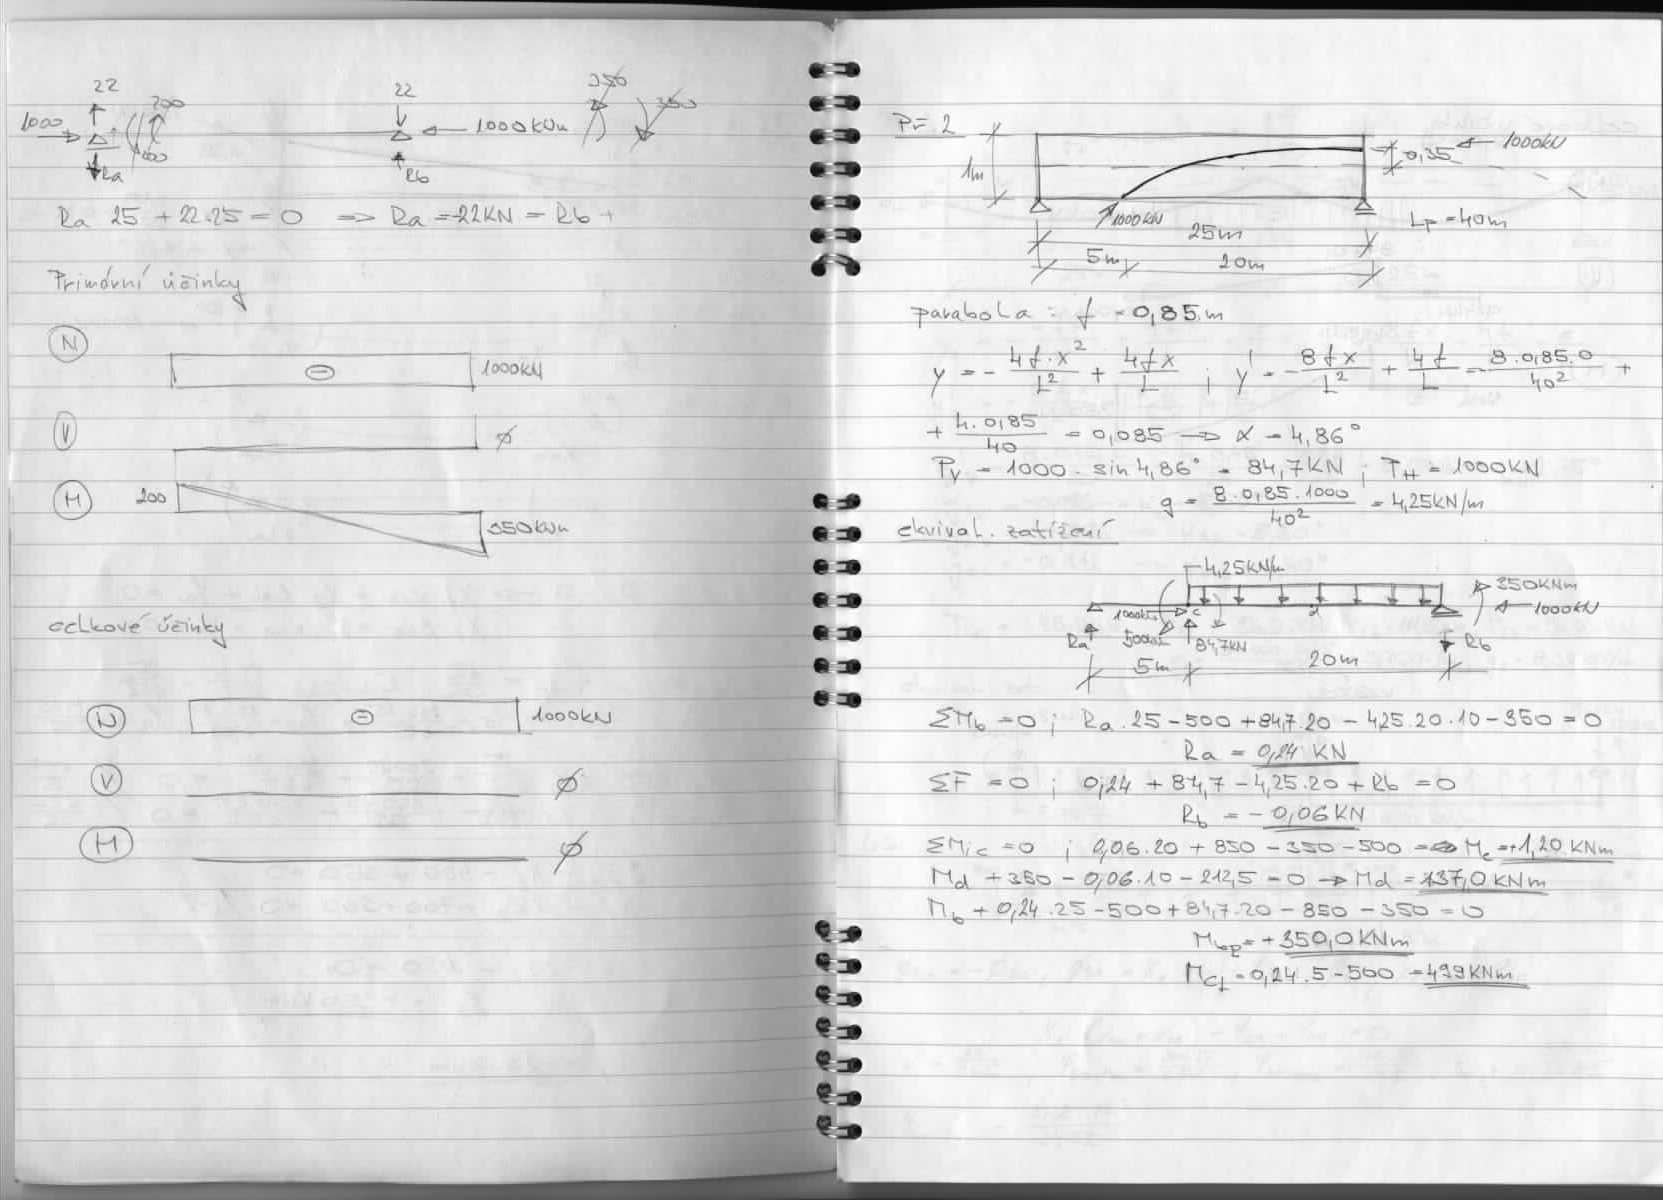 22
22
1000
200
1000 KNm
Ra
Rb
Ra 25 + 22.25 = 0 => Ra = -22KN = Rb +
Primární účinky
N
⊖
1000KN
V
ϕ
M
200
350KNm
celkové účinky
N
⊖
1000KN
V
ϕ
M
ϕ
Př. 2
1m
0,35
1000KN
1000KN
25m
Lp = 40m
5m
20m
parabola : f = 0,85 m
y = - 4f.x² / L² + 4fx / L ; y' = - 8fx / L² + 4f / L = 8.0,85.0 / 40² +
+ 4.0,85 / 40 = 0,085 → α = 4,86°
Pv = 1000 . sin 4,86° = 84,7KN ; PH = 1000KN
g = 8.0,85.1000 / 40² = 4,25KN/m
ekvival. zatížení
4,25KN/m
350KNm
c
d
1000KN
Ra
84,7KN
Rb
5m
20m
ΣMb = 0 ; Ra . 25 - 500 + 84,7.20 - 4,25.20.10 - 350 = 0
Ra = 0,24 KN
ΣF = 0 ; 0,24 + 84,7 - 4,25.20 + Rb = 0
Rb = - 0,06 KN
ΣMic = 0 ; 0,06.20 + 850 - 350 - 500 = Mc = +1,20 KNm
Md + 350 - 0,06.10 - 212,5 = 0 → Md = 137,0 KNm
Mb + 0,24.25 - 500 + 84,7.20 - 850 - 350 = 0
= +350,0 KNm
= 0,24.5 - 500 = 499 KNm